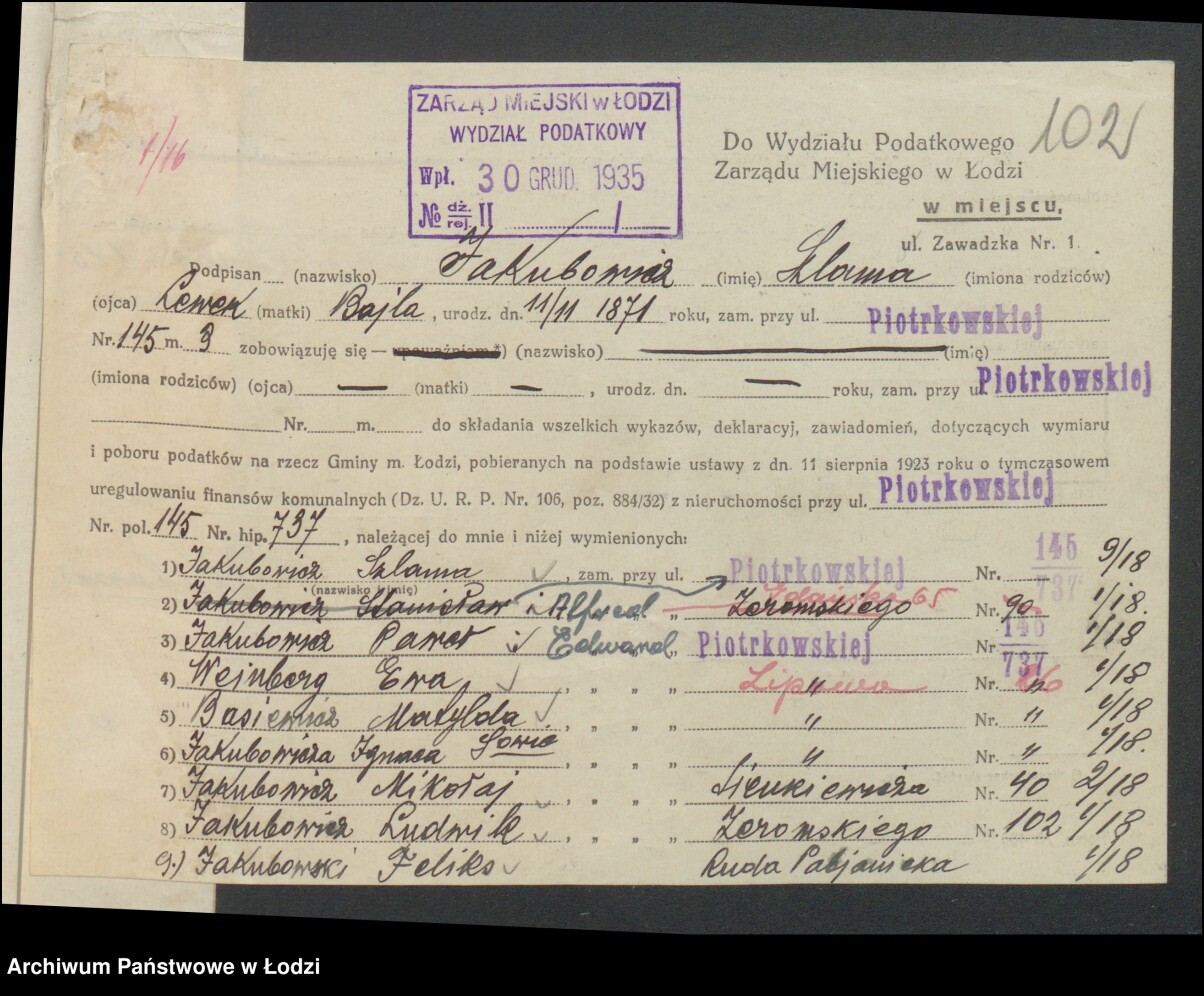 ZARZĄD MIEJSKI w ŁODZI
WYDZIAŁ PODATKOWY
Wpł. 30 GRUD. 1935
№ dż. rej. II /
1/16
102
Do Wydziału Podatkowego
Zarządu Miejskiego w Łodzi
w miejscu,
ul. Zawadzka Nr. 1.
Podpisan (nazwisko) Jakubowicz (imię) Szlama (imiona rodziców)
(ojca) Lewek (matki) Bajla, urodz. dn. 11/11 1871 roku, zam. przy ul. Piotrkowskiej
Nr. 145 m. 3 zobowiązuję się — upoważniam*) (nazwisko) — (imię)
(imiona rodziców) (ojca) — (matki) —, urodz. dn. — roku, zam. przy ul. Piotrkowskiej
Nr. m. do składania wszelkich wykazów, deklaracyj, zawiadomień, dotyczących wymiaru
i poboru podatków na rzecz Gminy m. Łodzi, pobieranych na podstawie ustawy z dn. 11 sierpnia 1923 roku o tymczasowem
uregulowaniu finansów komunalnych (Dz. U. R. P. Nr. 106, poz. 884/32) z nieruchomości przy ul. Piotrkowskiej
Nr. pol. 145 Nr. hip. 737, należącej do mnie i niżej wymienionych:
1) Jakubowicz Szlama, zam. przy ul. Piotrkowskiej Nr. 145/737 9/18
(nazwisko i imię)
2) Jakubowicz Stanisław i Alfred „ „ Gdańska 65 Żeromskiego Nr. 90 1/18.
3) Jakubowicz Paweł i Edward „ Piotrkowskiej Nr 145/737 1/18
4) Wejnberg Ewa, „ „ „ Lipowa „ Nr. „ 1/18
5) Basiewicz Matylda, „ „ „ „ Nr. „ 1/18
6) Jakubowicza Ignaca, „ „ „ „ Nr. „ 1/18.
7) Jakubowicz Mikołaj, „ „ „ Sienkiewicza Nr. 40 2/18
8) Jakubowicz Ludwik, „ „ „ Żeromskiego Nr. 102 1/18
9.) Jakubowski Feliks Ruda Pabjanicka 1/18
Archiwum Państwowe w Łodzi